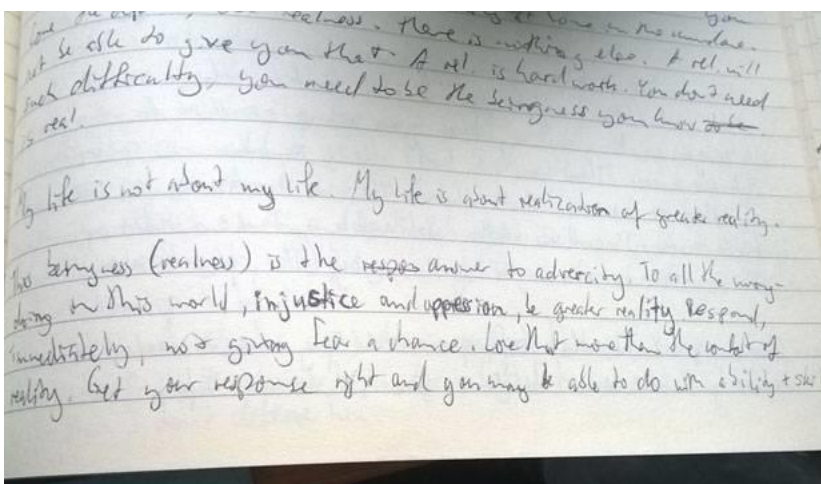 love in the mundane. you
realness. there is nothing else. A rel. will
not be able to give you that. A rel. is hard work. You don't need
such difficulty, you need to be the beingness you know to be
is real.
My life is not about my life. My life is about realization of greater reality.
This beingness (realness) is the respos answer to advercity. To all the wrong-
doing in this world, injustice and oppression, be greater reality Respond,
immediately, not giving fear a chance. Love that more than the comfort of
reality. Get your response right and you may be able to do with ability + ski